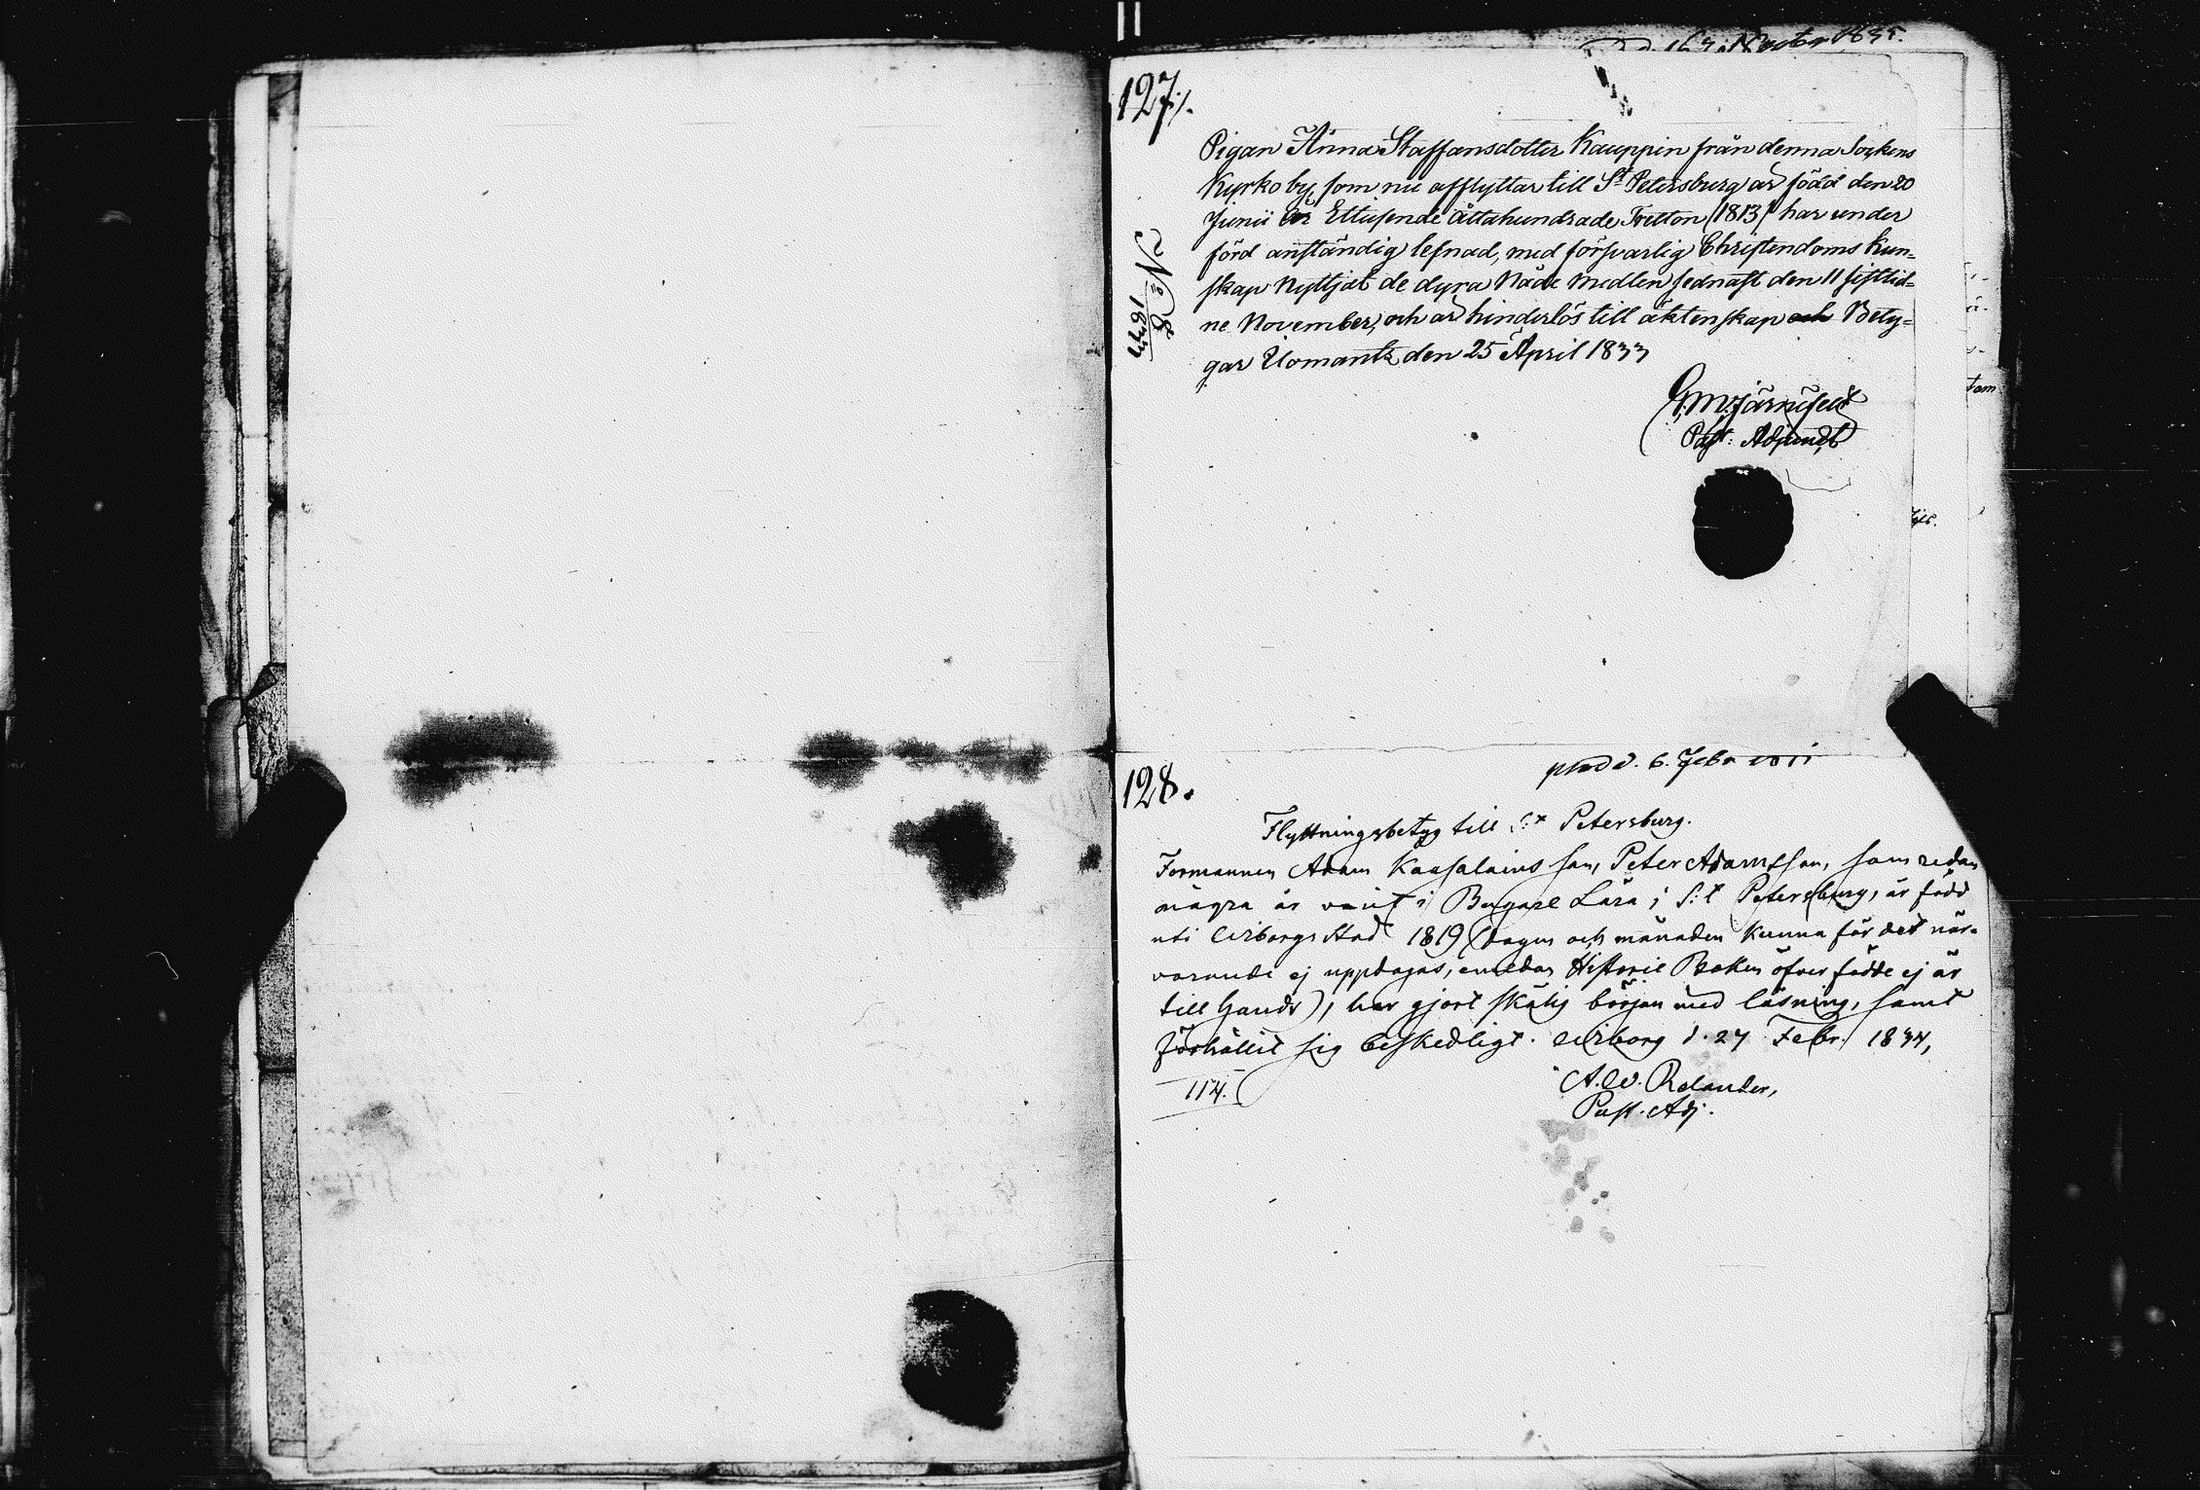 127./.
Pigan Anna Staffansdotter Kauppin från denna Sockens
Kyrkoby, som nu afflyttar till St Petersburg är född den 20
Junii år Ettusende Åttahundrade Tretton (1813) har under
förd anständig lefnad, med försvarlig Christendoms Kun=
skap Nyttjat de dyra Nåde Medlen sednast den 11 sistlid=
ne November, och är hinderlös till äktenskap och Bety=
gar Ilomants den 25 April 1833
G. M. Järnefelt
Past: Adjunct
No 8
1833
128.
d. 6. Febr
Flyttningsbetyg till S:t Petersburg.
Formannen Adam Kaasalains son, Peter Adamsson, som redan
några år varit i Bagare Lära i S:t Petersburg, är född
uti Wiborgs Stad 1819 (dagen och månaden kunna för det när=
varande ej uppdagas, emedan Historie Boken öfver födde ej är
till hands), har gjort skälig början med läsning, samt
förhållit sig beskedligt. Wiborg d. 27 Febr. 1834,
114.
A. W. Relander,
Past. Adj.